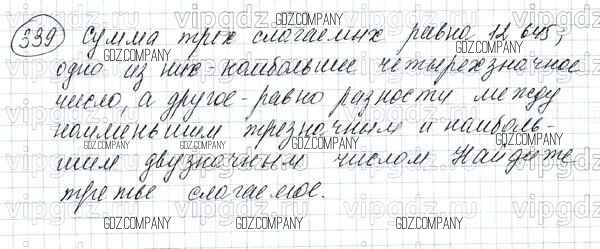 339 Сумма трех слагаемых равна 12 645;
одно из них - наибольшее четырехзначное
число, а другое - равно разности между
наименьшим трезначным и наиболь-
шим двузначным числом. Найдите
третье слагаемое.
GDZ.COMPANY
vipgdz